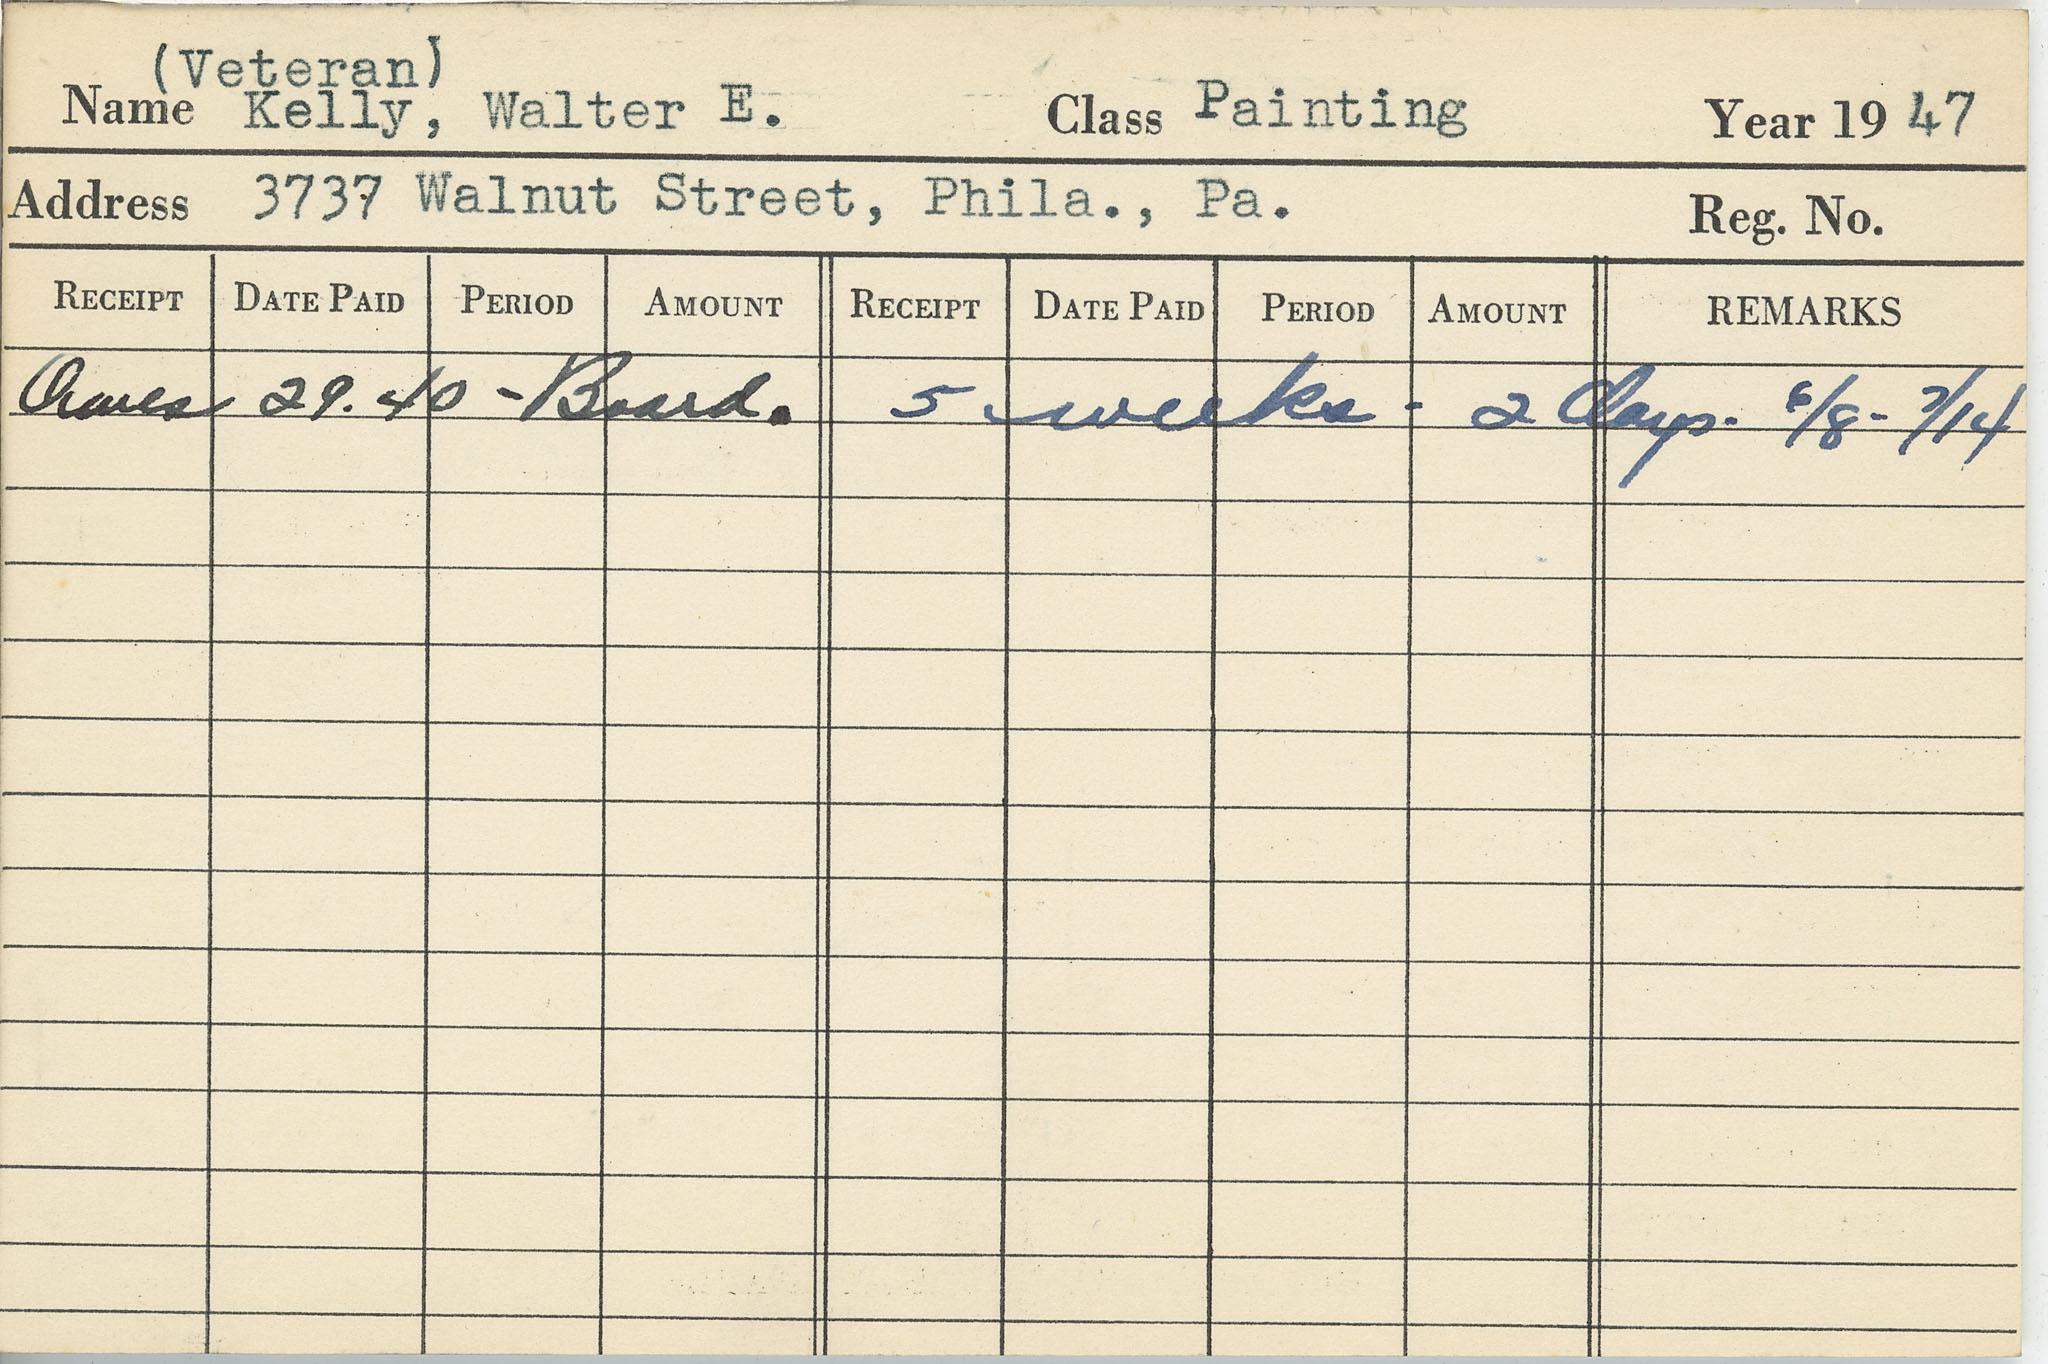 (Veteran)
Name Kelly, Walter E. Class Painting Year 19 47
Address 3737 Walnut Street, Phila., Pa. Reg. No.
RECEIPT DATE PAID PERIOD AMOUNT RECEIPT DATE PAID PERIOD AMOUNT REMARKS
Owes 29.40 - Board. 5 weeks - 2 Days. 6/8 - 7/14